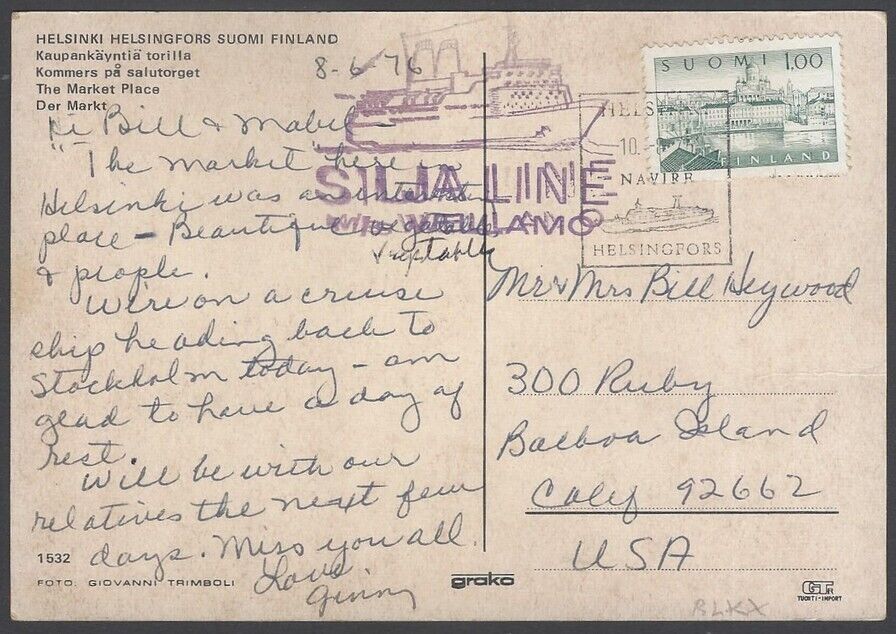 HELSINKI HELSINGFORS SUOMI FINLAND
Kaupankäyntiä torilla
Kommers på salutorget
The Market Place
Der Markt
8-6-76
Hi Bill & Mabel -
The market here in
Helsinki was an
place - Beautiful vegetable
vegtables
& people.
We're on a cruise
ship heading back to
Stockholm today - am
glad to have a day of
rest.
Will be with our
relatives the next few
days. Miss you all.
Love
Ginny
1532
FOTO: GIOVANNI TRIMBOLI
SILJA LINE
WELLAMO
SUOMI 1.00
FINLAND
10.
NAVIRE
HELSINGFORS
Mr & Mrs Bill Heywood
300 Ruby
Balboa Island
Calif 92662
USA
grako
GT
TUONTI-IMPORT
BLKX